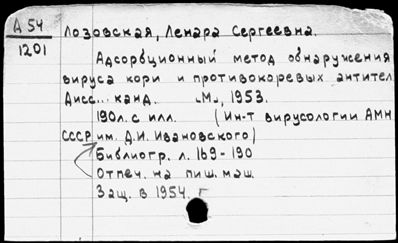 А 54
1201
Лозовская, Ленара Сергеевна.
Адсорбционный метод обнаружения
вируса кори и противокоревых антител.
Дисс... канд. М., 1953.
190л. с илл. (Ин-т вирусологии АМН
СССР им. Д.И. Ивановского)
Библиогр. л. 169-190
Отпеч. на пиш. маш.
Защ. в 1954 г